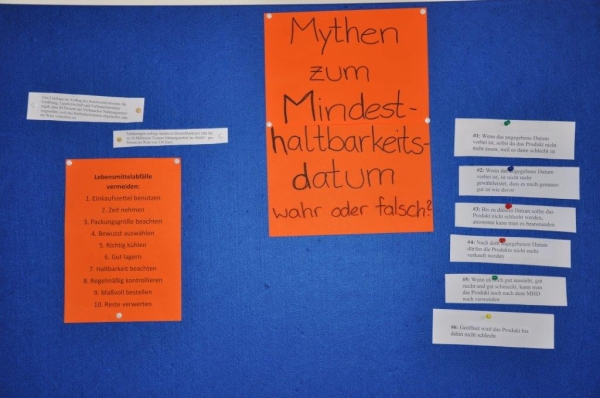 Mythen
zum
Mindest-
haltbarkeits-
datum
wahr oder falsch?
Lebensmittelabfälle
vermeiden:
1. Einkaufszettel benutzen
2. Zeit nehmen
3. Packungsgröße beachten
4. Bewusst auswählen
5. Richtig kühlen
6. Gut lagern
7. Haltbarkeit beachten
8. Regelmäßig kontrollieren
9. Maßvoll bestellen
10. Reste verwerten
#1: Wenn das angegebene Datum
vorbei ist, sollst du das Produkt nicht
mehr essen, weil es dann schlecht ist
#2: Wenn das angegebene Datum
vorbei ist, ist nicht mehr
gewährleistet, dass es noch genauso
gut ist wie davor
#3: Bis zu diesem Datum sollte das
Produkt nicht schlecht werden,
ansonsten kann man es beanstanden
#4: Nach dem angegebenen Datum
dürfen die Produkte nicht mehr
verkauft werden
#5: Wenn es noch gut aussieht, gut
riecht und gut schmeckt, kann man
das Produkt auch nach dem MHD
noch verwenden
#6: Geöffnet wird das Produkt bis
dahin nicht schlecht